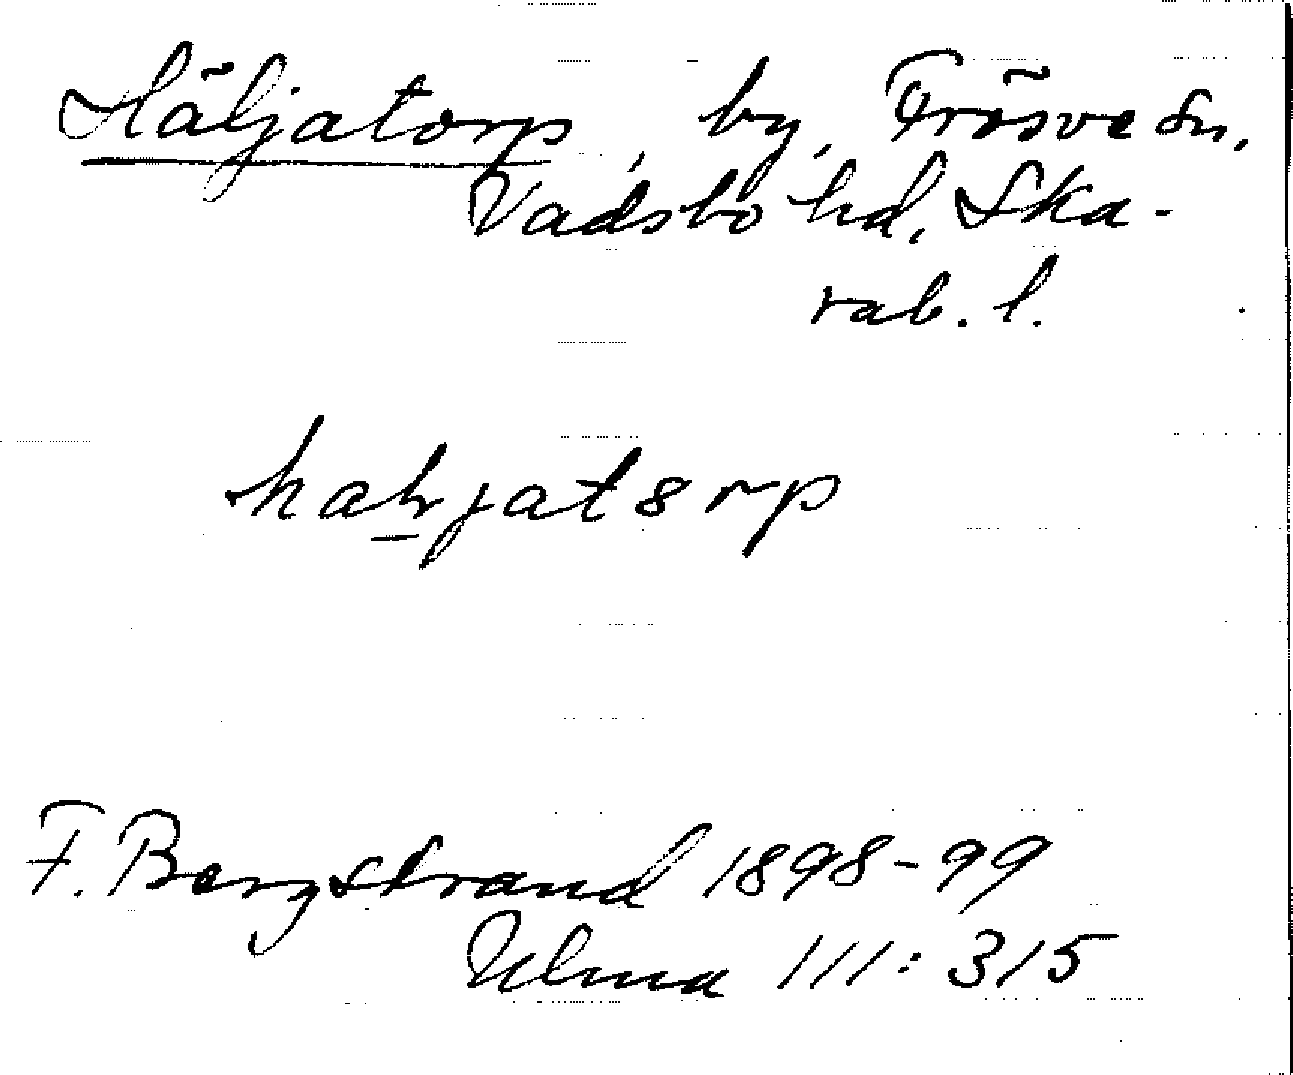 Häljatorp, by, Frösve sn,
Vadsbo hd, Ska-
rab. l.
hahjat8rp
F. Bergstrand 1898-99
Ulma 111:315